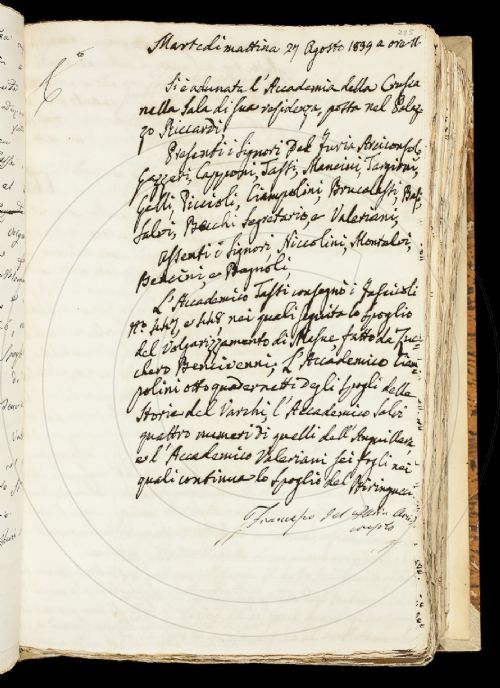 223
Martedì mattina 27 Agosto 1839 a ore 11
Si è adunata l'Accademia della Crusca
nella Sala di sua residenza, posta nel Palaz
zo Riccardi.
Presenti i Signori Del Furia Arciconsolo
Gazzeri, Capponi, Tassi, Mancini, Targioni,
Gelli, Piccioli, Ciampolini, Brucalassi,
Salvi, Becchi Segretario, e Valeriani,
Assenti i Signori Niccolini, Montalvi,
Bencini, e Bagnoli
L'Accademico Tassi consegnò i Fascicoli
nº. 447, e 448 nei quali seguita lo Spoglio
del Volgarizzamento di Mesue fatto da Zuc-
chero Bencivenni, L'Accademico Ciam-
polini otto quadernetti degli spogli delle
Storie del Varchi, l'Accademico Salvi
quattro numeri di quelli dell'Anguillara
e l'Accademico Valeriani sei fogli nei
quali continua lo Spoglio del Biringucci.
Francesco del Furia Arci
consolo